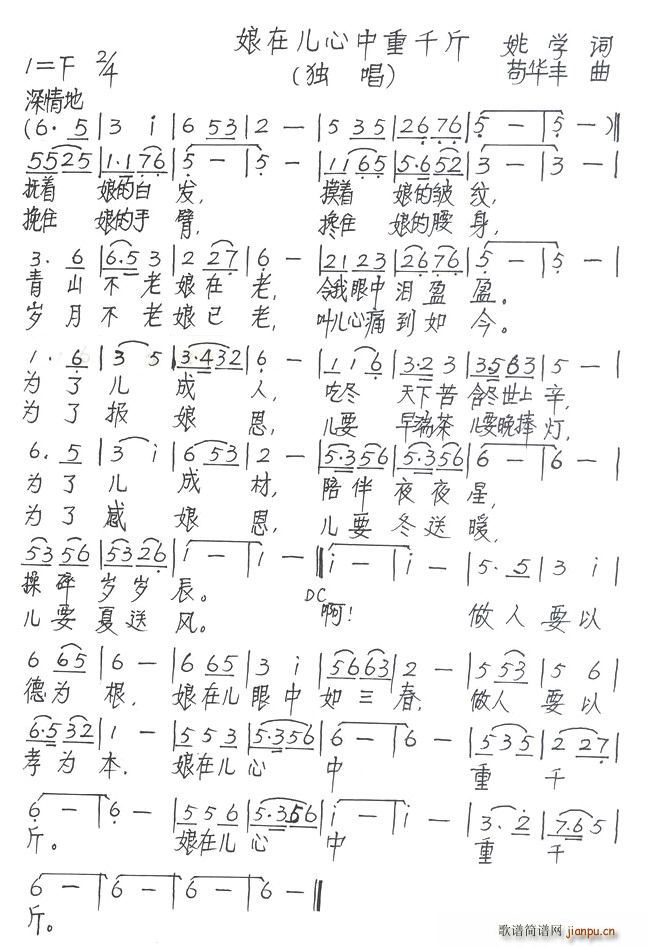 娘在儿心中重千斤 姚学词
1=F 2/4 (独唱) 苟华丰 曲
深情地
(6. 5 | 3 i | 6 53 | 2 — | 5 35 | 26 76 | 5 — | 5 — )‖
5525 | 1.176 | 5 — | 5 — | 1165 | 5.652 | 3 — | 3 — |
抚着 娘的白发, 摸着 娘的皱纹,
挽住 娘的手臂, 搀住 娘的腰身,
3. 6 | 6.5 3 | 2 27 | 6 — | 21 23 | 26 76 | 5 — | 5 — |
青山不老娘在老, 令我眼中泪盈盈。
岁月不老娘已老, 叫儿心痛到如今。
1. 6 | 3 5 | 3.432 | 6 — | 1 1 6 | 3.2 3 | 3563 | 5 — |
为了儿成人, 吃尽 天下苦 含尽世上辛,
为了报娘恩, 儿要 早端茶 儿要晚捧灯,
6. 5 | 3 i | 6 53 | 2 — | 5.356 | 5.356 | 6 — | 6 — |
为了儿成材, 陪伴夜夜星,
为了感娘恩, 儿要冬送暖,
53 56 | 5326 | i — | i — ‖ i — | i — | 5. 5 | 3 i |
操碎岁岁辰。 DC 啊! 做人要以
儿要夏送风。
6 65 | 6 — | 6 65 | 3 i | 5663 | 2 — | 5 53 | 5 6 |
德为根, 娘在儿眼中如三春, 做人要以
6.532 | 1 — | 5 5 3 | 5.356 | 6 — | 6 — | 5 3 5 | 2 27 |
孝为本. 娘在儿心中重千
6 — | 6 — | 5 5 6 | 5.356 | i — | i — | 3. 2 | 7.6 5 |
斤。 娘在儿心中重千
6 — | 6 — | 6 — | 6 — ‖
斤。
歌谱简谱网
jianpu.cn